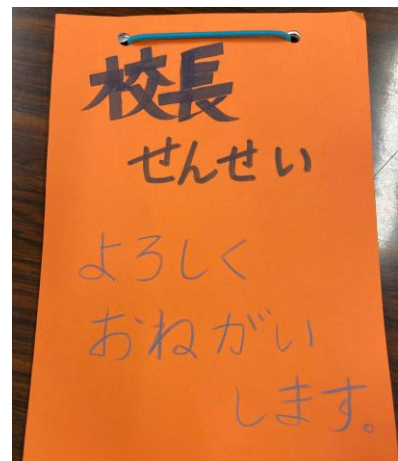 校長
せんせい
よろしく
おねがい
します。